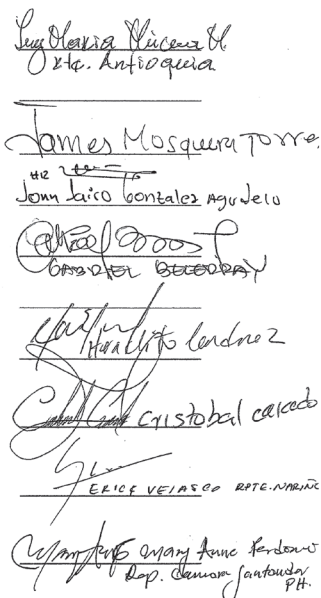 Luz María Múnera M.
Rte. Antioquia
James Mosquera Torres
H12
John Jairo Gonzalez Agudelo
GABRIEL BECERRA Y
Heraclito Landinez
Cristobal Caicedo
ERICK VELASCO RPTE. NARIÑO
Mary Anne Perdomo
Rep. Camara Santander
PH.